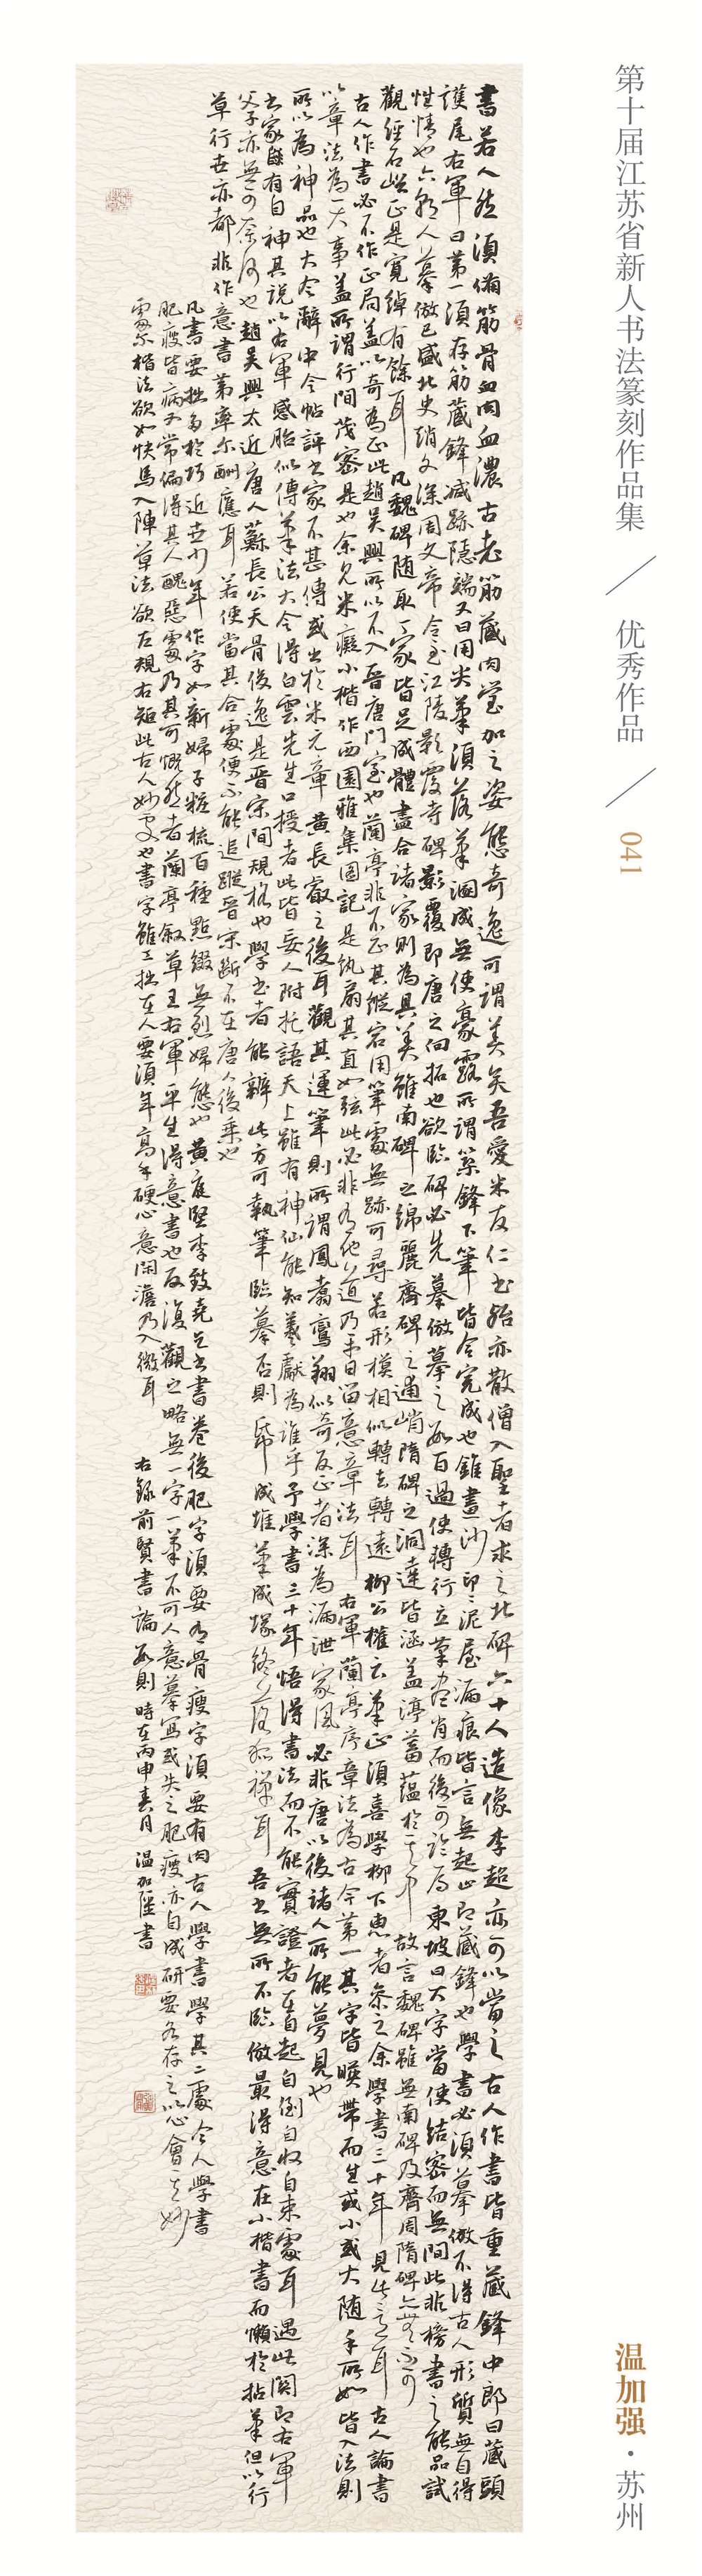 第十届江苏省新人书法篆刻作品集／优秀作品／041
温加强·苏州
書若人然須備筋骨血肉血濃古老筋藏肉瑩加之姿態奇逸可謂美矣吾愛米友仁書殆亦散僧入聖者求之北碑六十人造像李超亦可以當之古人作書皆重藏鋒中郎曰藏頭
護尾右軍曰第一須存筋藏鋒滅跡隱端又曰用尖筆須落筆混成無使豪露所謂築鋒下筆皆令完成也錐畫沙印印泥屋漏痕皆言無起止即藏鋒也學書必須摹倣不得古人形質無自得
性情也六朝人摹倣已盛北史趙文深周文帝令至江陵影覆寺碑影覆即唐之向拓也欲臨碑必先摹倣摹之數百過使轉行立筆盡肖而後可臨焉東坡曰大字當使結密而無間此非榜書之能品試
觀經石峪正是寬綽有餘耳 凡魏碑随取一家皆足成體盡合諸家則為具美雖南碑之綿麗齊碑之逋峭隋碑之洞達皆涵蓋渟蓄蘊於其中故言魏碑雖無南碑及齊周隋碑亦無不可
古人作書必不作正局蓋以奇為正此趙吳興所以不入晋唐門室也蘭亭非不正其縱宕用筆處無跡可尋若形模相似轉去轉遠柳公權云筆正須善學柳下惠者參之余學書三十年見此意耳 古人論書
以章法為一大事蓋所謂行間茂密是也余見米癡小楷作西園雅集圖記是紈扇其直如弦此必非有他道乃平日留意章法耳 右軍蘭亭序章法為古今第一其字皆暎帶而生或小或大随手所如皆入法則
所以為神品也大令辭中令帖評書家不甚傳或出於米元章黄長睿之後耳觀其運筆則所謂鳳翥鸞翔似奇反正者深為漏泄家風必非唐以後諸人所能夢見也
書家既有自神其說以右軍感胎似傳筆法大令得白雲先生口授者此皆妄人附托語天上雖有神仙能知羲獻為誰乎予學書三十年悟得書法而不能實證者在自起自倒自收自束處耳過此關即右軍
父子亦無可奈何也趙吳興太近唐人蘇長公天骨俊逸是晋宋間規格也學書者能辨此方可執筆臨摹否則紙成堆筆成塚終落狐禪耳 吾書無所不臨倣最得意在小楷書而懶於拈筆但以行
草行世亦都非作意書第率尔酬應耳若使當其合處便不能追蹤晉宋斷不在唐人後乘也
凡書要拙多於巧近世少年作字如新婦子粧梳百種點綴無烈婦態也黄庭堅李致堯乞書書卷後肥字須要有骨瘦字須要有肉古人學書學其二處今人學書
肥瘦皆病又常偏得其人醜惡處乃其可慨然者蘭亭叙草王右軍平生得意書也反復觀之略無一字一筆不可人意摹寫或失之肥瘦亦自成妍要各存之以心會其妙
處尔楷法欲如快馬入陣草法欲左規右矩此古人妙處也書字雖工拙在人要須年高手硬心意閑澹乃入微耳 右錄前賢書論數則 時在丙申春月 温加强書